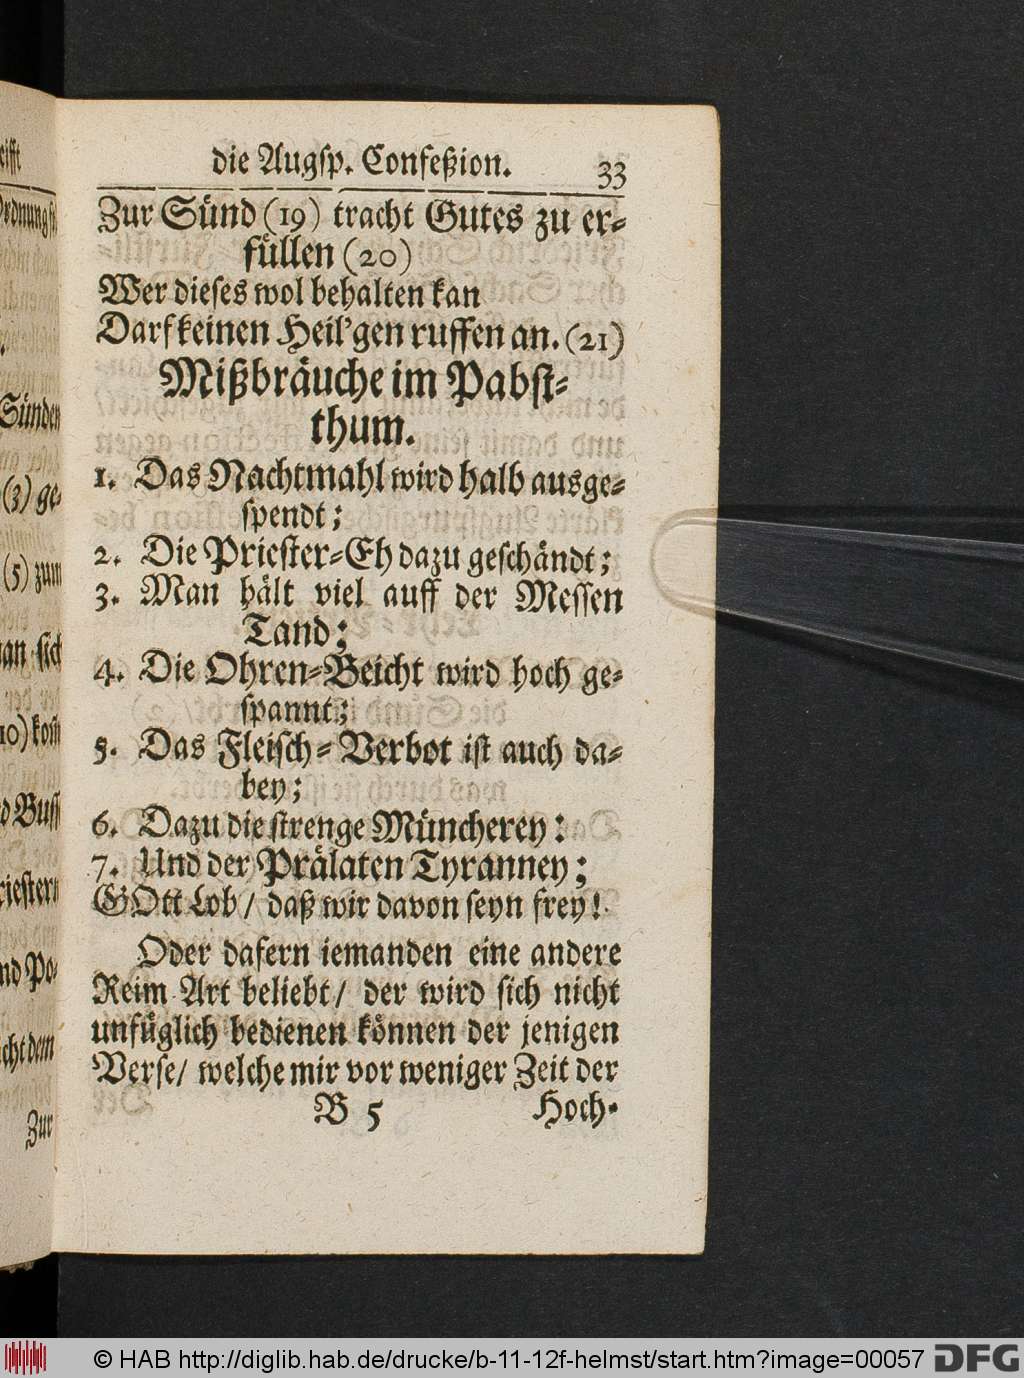 die Augsp. Confeßion. 33
Zur Sünd (19) tracht Gutes zu er-
füllen (20)
Wer dieses wol behalten kan
Darf keinen Heil'gen ruffen an. (21)
Mißbräuche im Pabst-
thum.
1. Das Nachtmahl wird halb ausge-
spendt;
2. Die Priester-Eh dazu geschändt;
3. Man hält viel auff der Messen
Tand;
4. Die Ohren-Beicht wird hoch ge-
spannt;
5. Das Fleisch-Verbot ist auch da-
bey;
6. Dazu die strenge Müncherey:
7. Und der Prälaten Tyranney;
GOtt Lob / daß wir davon seyn frey!
Oder dafern iemanden eine andere
Reim Art beliebt / der wird sich nicht
unfüglich bedienen können der jenigen
Verse / welche mir vor weniger Zeit der
B 5 Hoch-
Sünden
(3) ge-
(5) zum
sich
nd Po-
Zur
© HAB http://diglib.hab.de/drucke/b-11-12f-helmst/start.htm?image=00057 DFG